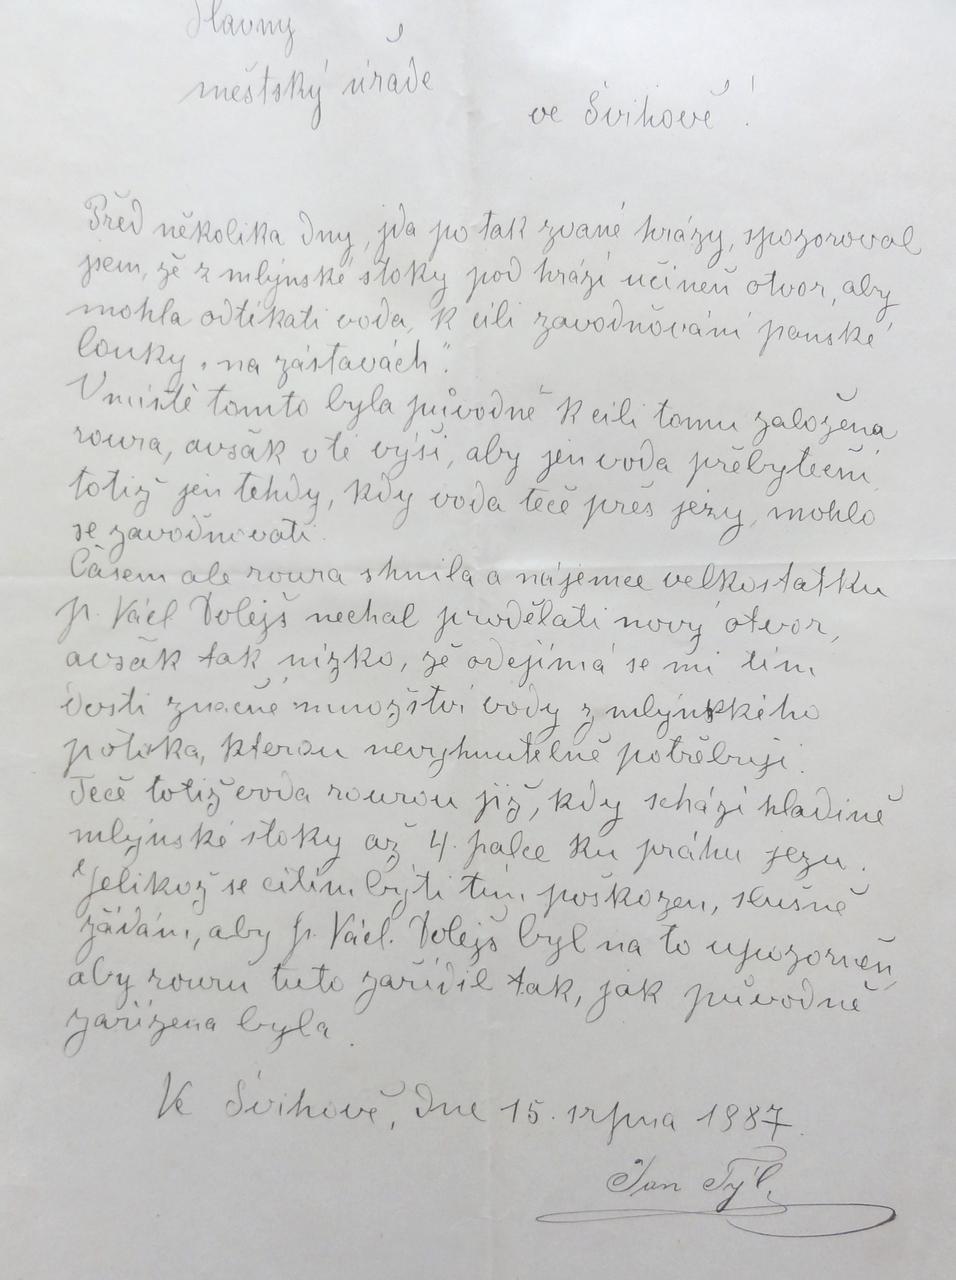 Slavný
městský úřade
ve Švihově!
Před několika dny, jda po tak zvané hrázy, spozoroval
jsem, že z mlýnské stoky pod hrází učiněn otvor, aby
mohla odtékati voda, k cíli zavodňování panské
louky „na zástavách".
V místě tomto byla původně k cíli tomu založena
roura, avšak v té výši, aby jen voda přebyteční,
totiž jen tehdy, kdy voda teče přes jezy, mohlo
se zavodňovati.
Časem ale roura shnila a nájemce velkostatku
p. Václ Dolejš nechal prodělati nový otvor,
avšak tak nízko, že odejímá se mi tím
dosti značné množství vody z mlýnského
potoka, kterou nevyhnutelně potřebuji.
Teče totiž voda rourou již, kdy schází hladině
mlýnské stoky až 4. palce ku práhu jezu.
Jelikož se cítím býti tím poškozen, slušně
žádám, aby p. Václ. Dolejš byl na to upozorněn,
aby rouru tuto zařídil tak, jak původně
zařízena byla.
Ve Švihově, dne 15. srpna 1887.
Jan Týl.